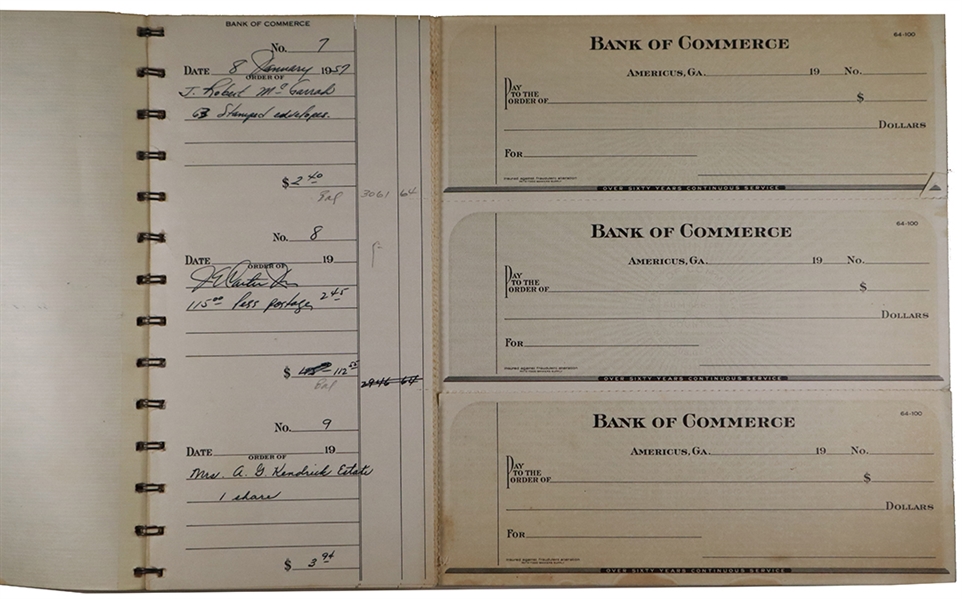 BANK OF COMMERCE
No. 7
DATE 8 January 1957
ORDER OF
J. Robert McGarrah
63 Stamped envelopes.
$ 2 40
Bal 3061 64
No. 8
DATE 19
ORDER OF
JE Carter Jr
115 00 less postage 2 45
$ 112 55
Bal 2946 64
No. 9
DATE 19
ORDER OF
Mrs. A. G. Kendrick Estate
1 share
$ 3 94
64-100
BANK OF COMMERCE
AMERICUS, GA. 19 No.
PAY TO THE ORDER OF $
DOLLARS
FOR
Insured against fraudulent alteration
OVER SIXTY YEARS CONTINUOUS SERVICE
64-100
BANK OF COMMERCE
AMERICUS, GA. 19 No.
PAY TO THE ORDER OF $
DOLLARS
FOR
Insured against fraudulent alteration
OVER SIXTY YEARS CONTINUOUS SERVICE
64-100
BANK OF COMMERCE
AMERICUS, GA. 19 No.
PAY TO THE ORDER OF $
DOLLARS
FOR
Insured against fraudulent alteration
OVER SIXTY YEARS CONTINUOUS SERVICE